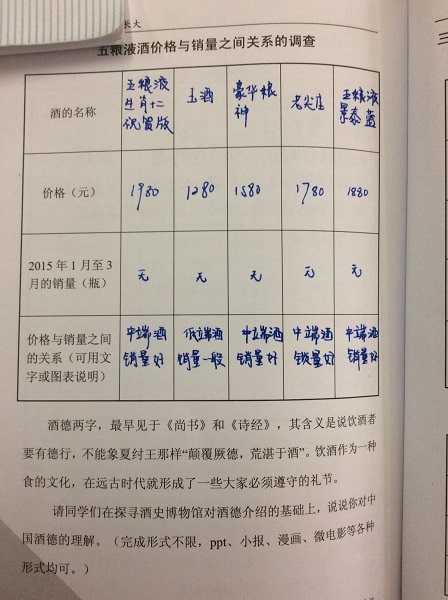 长大
五粮液酒价格与销量之间关系的调查
酒的名称
五粮液
生肖十二
祝贺版
玉酒
豪华娘
神
老尖庄
五粮液
景泰蓝
价格（元）
1980
1280
1580
1780
1880
2015 年 1 月至 3
月的销量（瓶）
无
无
无
无
无
价格与销量之间
的关系（可用文
字或图表说明）
中端酒
销量好
低端酒
销量一般
中端酒
销量好
中端酒
销量好
中端酒
销量好
酒德两字，最早见于《尚书》和《诗经》，其含义是说饮酒者
要有德行，不能象夏纣王那样“颠覆厥德，荒湛于酒”。饮酒作为一种
食的文化，在远古时代就形成了一些大家必须遵守的礼节。
请同学们在探寻酒史博物馆对酒德介绍的基础上，说说你对中
国酒德的理解。（完成形式不限，ppt、小报、漫画、微电影等各种
形式均可。）